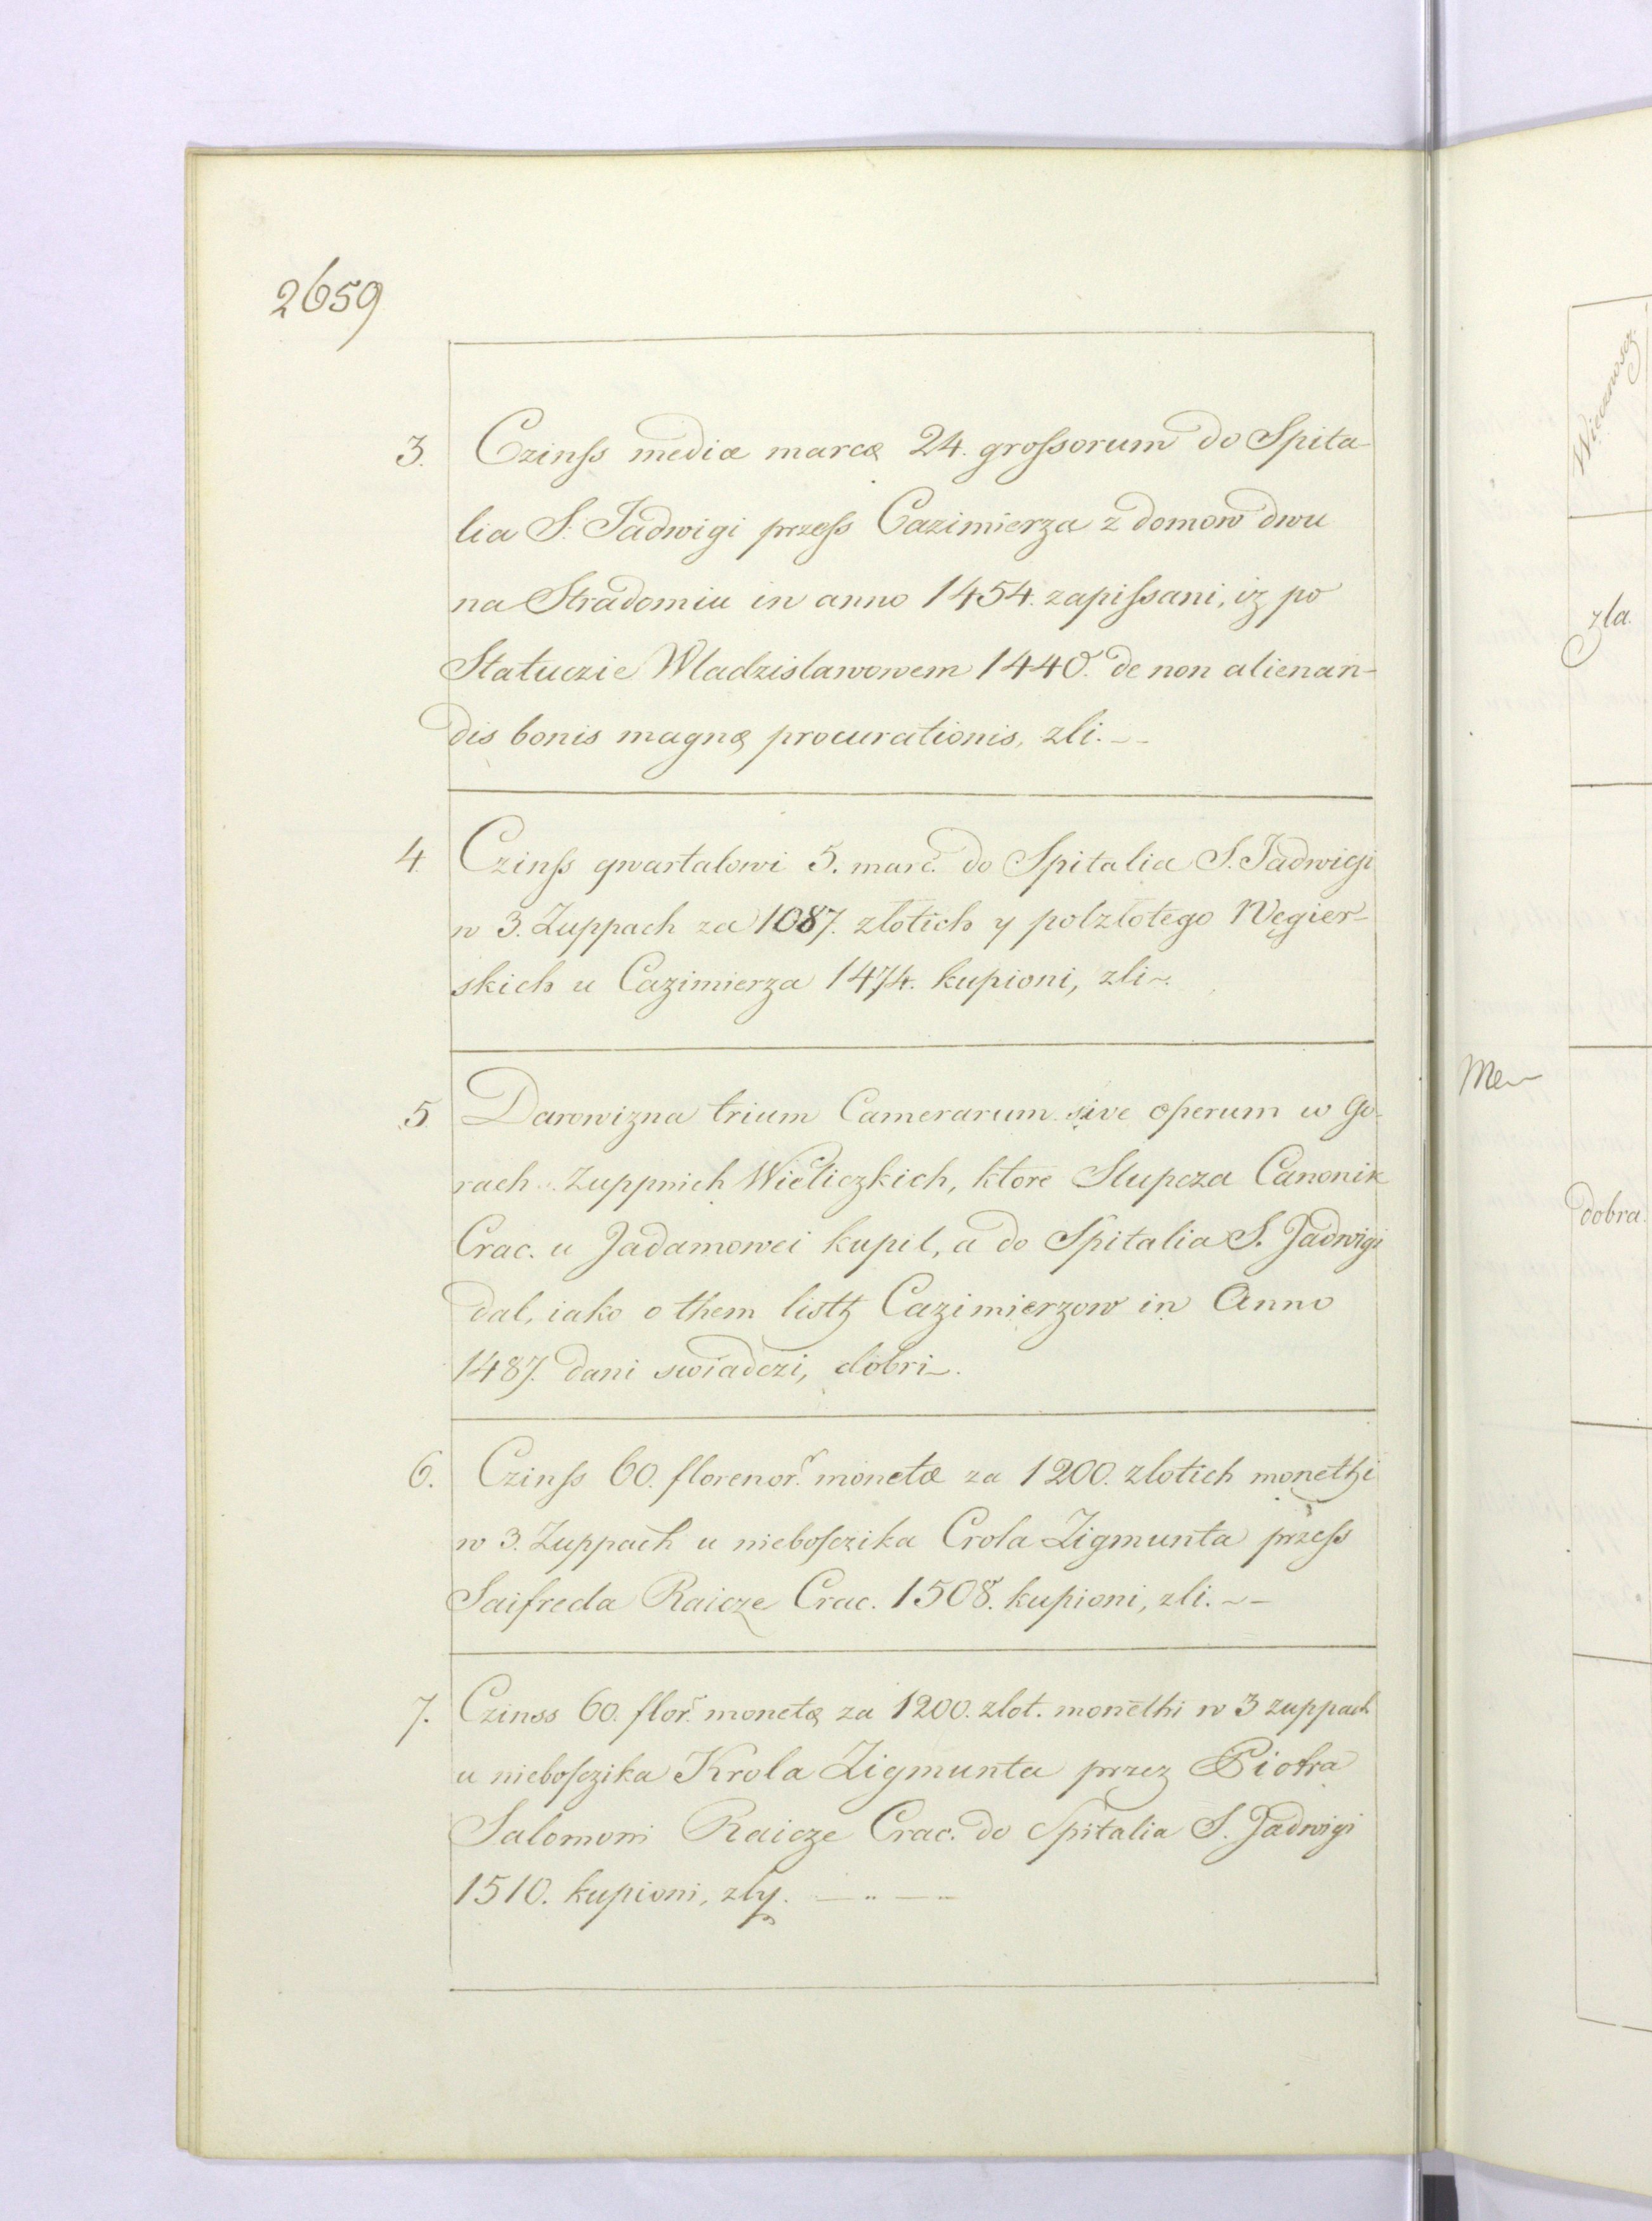 2659
3. Czinſs mediæ marcę 24. groſsorum do Spita-
lia S. Jadwigi przeſs Cazimierza z domow dwu
na Stradomiu in anno 1454. zapiſsani, iz po
Statuczie Wladzislawowem 1440. de non alienan-
dis bonis magnę procurationis, zli. --
4. Czinſs qwartalowi 5. març. do Spitalia S. Jadwigi
w 3. Zuppach za 1087. zlotich y polzlotego Węgier-
skich u Cazimierza 1474. kupioni, zli~.
5 Darowizna trium Camerarum sive operum w Go-
rach Zuppnich Wieliczkich, ktore Slupcza Canonik
Crac. u Jadamowei kupil, a do Spitalia S. Jadwigi
dal, iako o them listh Cazimierzow in Anno
1487. dani swiadczi, dobri~.
6. Czinſs 60. florenor. monetæ za 1200. zlotich monethi
w 3. Zuppach u nieboſczika Crola Zigmunta przeſs
Saifreda Raicze Crac. 1508. kupioni, zli. ~-
7. Czinss 60. flor. monetę za 1200. zlot. monethi w 3 zuppach
u nieboſczika Krola Zigmunta przez Piotra
Salomoni Raicze Crac. do Spitalia S. Jadwigi
1510. kupioni, zly. — .. — ..
Wiecznoscz
zla.
dobra.